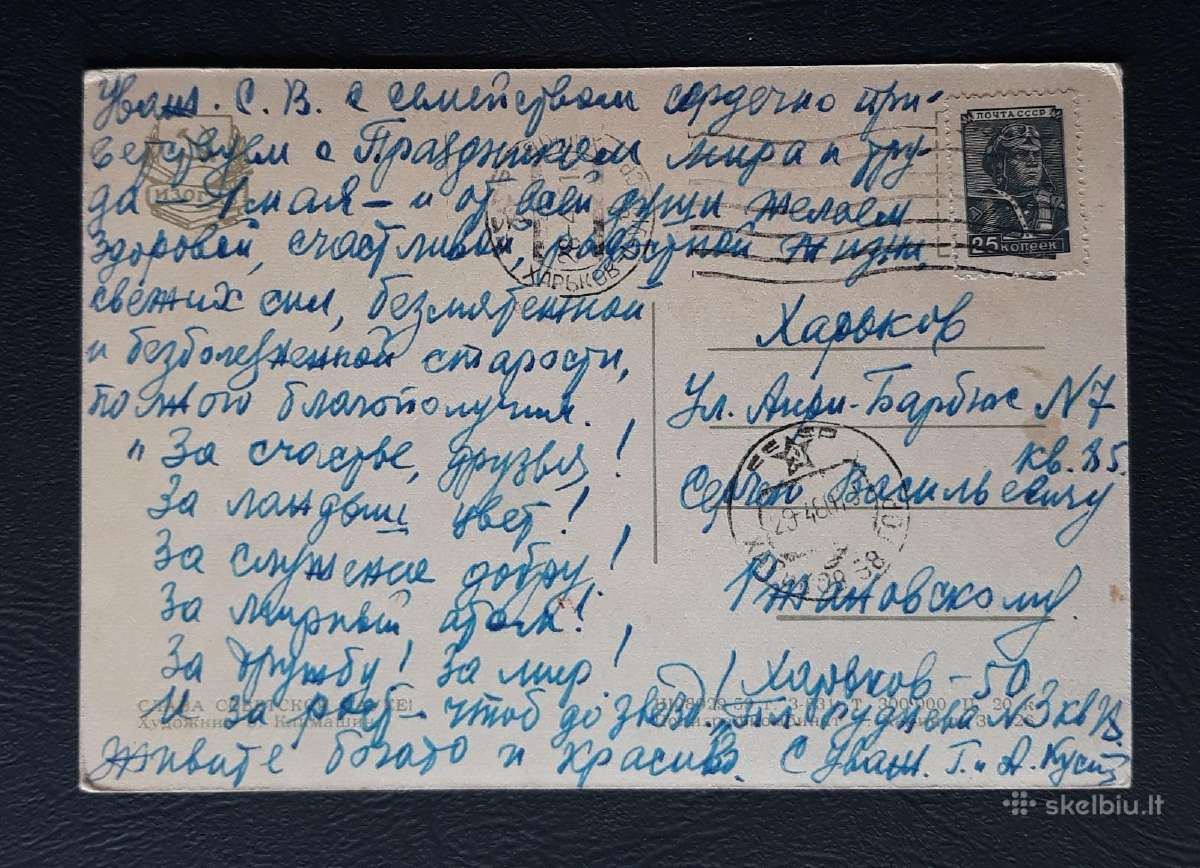 Уваж. С. В. с семейством сердечно при-
ветствуем с Праздником мира и тру-
да 1 мая – и от всей души желаем
здоровой, счастливой, радостной жизни,
свежих сил, безмятежной
и безболезненной старости,
полного благополучия.
"За счастье, друзья!
За ландыш цвет!
За служение добру!
За мирный атом!
За дружбу! За мир!
И за рост – чтоб до звезд
Живите богато и красиво. С уваж. Г. и А.
ИЗОГИЗ
ПОЧТА СССР
25 КОПЕЕК
ХАРЬКОВ
Харьков
Ул. Анри-Барбюс N 7
кв. 85.
Сергею Васильевичу
Ржановскому.
Харьков – 50
N 3 кв
СЛАВА СОВЕТСКОЙ
Художник
300 000
skelbiu.lt